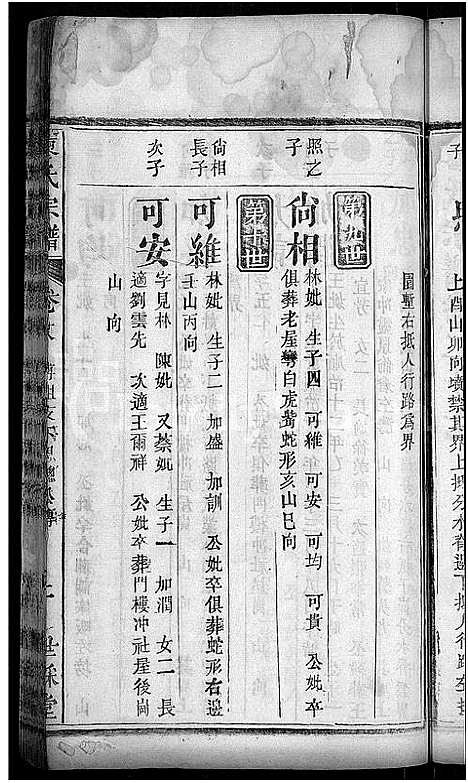 上酉山卯向墳禁其界上抵分水脊邊下抵人行路左抵
圍塹右抵人行路爲界
第九世
照之子
尙相
林妣 生子四 可維 可安 可均 可貴 公妣卒
俱葬老屋彎白虎嘴蛇形亥山巳向
第十世
尙相長子
可維
林妣 生子二 加盛 加訓 公妣卒俱葬蛇形右邊
壬山丙向
次子
可安
字見林 陳妣 又蔡妣 生子一 加潤 女二 長
適劉雲先 次適王爾祥 公妣卒葬門樓冲社屋後崗
山向
氏宗譜
卷
世綵堂